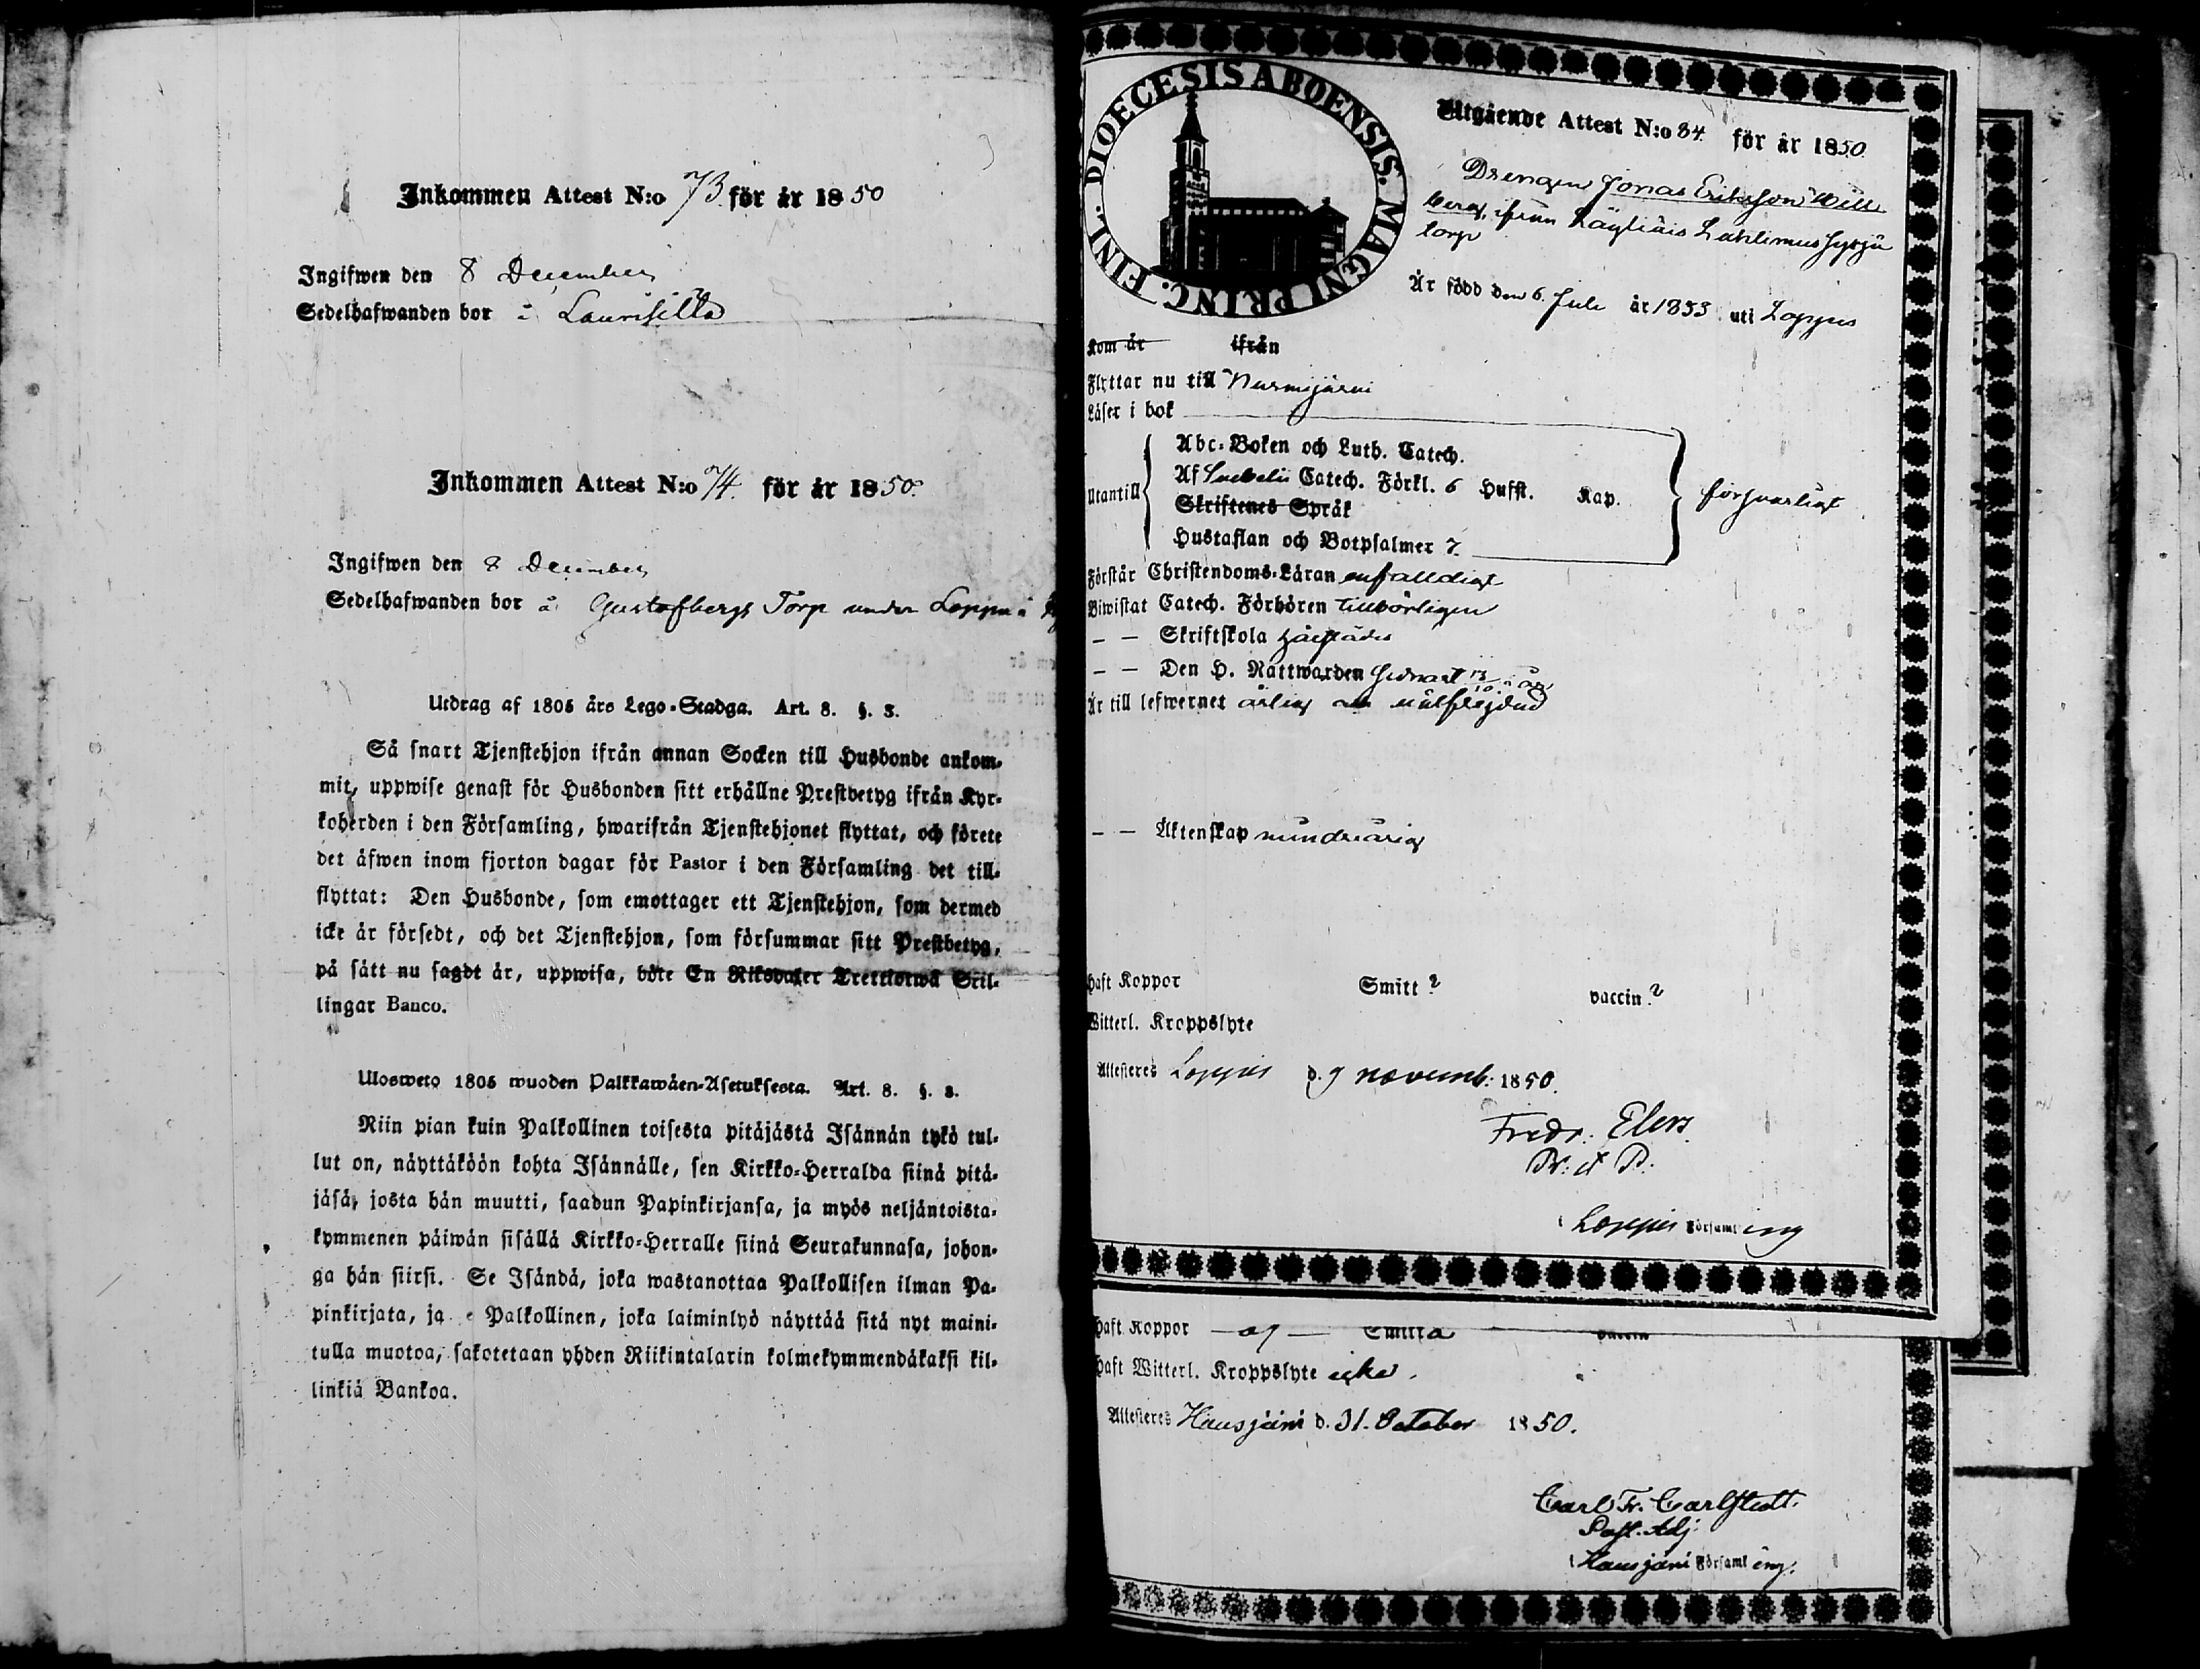 Inkommen Attest N:o 73 för år 1850
Ingifwen den 8 December
Sedelhafwanden bor i Laurisilla
Inkommen Attest N:o 74. för år 1850.
Ingifwen den 8 December
Sedelhafwanden bor å Gustafbergs Torp under Loppu i
Utdrag af 1805 års Lego-Stadga. Art. 8. §. 3.
Så snart Tjenstehjon ifrån annan Socken till Husbonde ankom-
mit, uppwise genast för Husbonden sitt erhållne Prestbetyg ifrån Kyr-
koherden i den Församling, hwarifrån Tjenstehjonet flyttat, och förete
det äfwen inom fjorton dagar för Pastor i den Församling det till-
flyttat: Den Husbonde, som emottager ett Tjenstehjon, som dermed
icke är försedt, och det Tjenstehjon, som försummar sitt Prestbetyg,
på sätt nu sagdt är, uppwisa, böte En Riksdaler Trettiotwå Skil-
lingar Banco.
Ulosweto 1805 wuoden Palkkawäen-Asetuksesta. Art. 8. §. 3.
Niin pian kuin Palkollinen toisesta pitäjästä Isännän tykö tul-
lut on, näyttäköön kohta Isännälle, sen Kirkko-Herralda siinä pitä-
jäsä, josta hän muutti, saadun Papinkirjansa, ja myös neljäntoista-
kymmenen päiwän sisällä Kirkko-Herralle siinä Seurakunnasa, johon-
ga hän siirsi. Se Isändä, joka wastanottaa Palkollisen ilman Pa-
pinkirjata, ja e Palkollinen, joka laiminlyö näyttää sitä nyt maini-
tulla muotoa, sakotetaan yhden Riikintalarin kolmekymmendäkaksi kil-
linkiä Bankoa.
DIOECESIS ABOENSIS. MAGNI PRINC. FINL.
Utgående Attest N:o 84. för år 1850.
Drengen Jonas Eriksson Will
berg, ifrån Läyliäis
torp
År född den 6. Juli år 1833 uti Loppis
Kom år ifrån
Flyttar nu till Nurmijärvi
Läser i bok
Utantill
Abc-Boken och Luth. Catech.
Af Svebelii Catech. Förkl. 6 Hufst. Kap.
Skriftenes Språk
Hustaflan och Botpsalmer 7.
försvarligt
Förstår Christendoms-Läran enfalldigt
Biwistat Catech. Förhören tillbörligen
— — Skriftskola härstädes
— — Den H. Nattwarden sednast
Är till lefwernet ärlig och välfrejdad
— — Äktenskap minderårig
Haft Koppor Smitt? vaccin?
Witterl. Kroppslyte
Attesteres Loppis d. 9 novemb: 1850.
Fredr. Elers.
i Loppis Församling
Haft Koppor
Haft Witterl. Kroppslyte icke.
Attesteres Hausjärvi d. 31. October 1850.
Carl Fr. Carlstedt.
Past. Adj.
i Hausjärvi Församling.